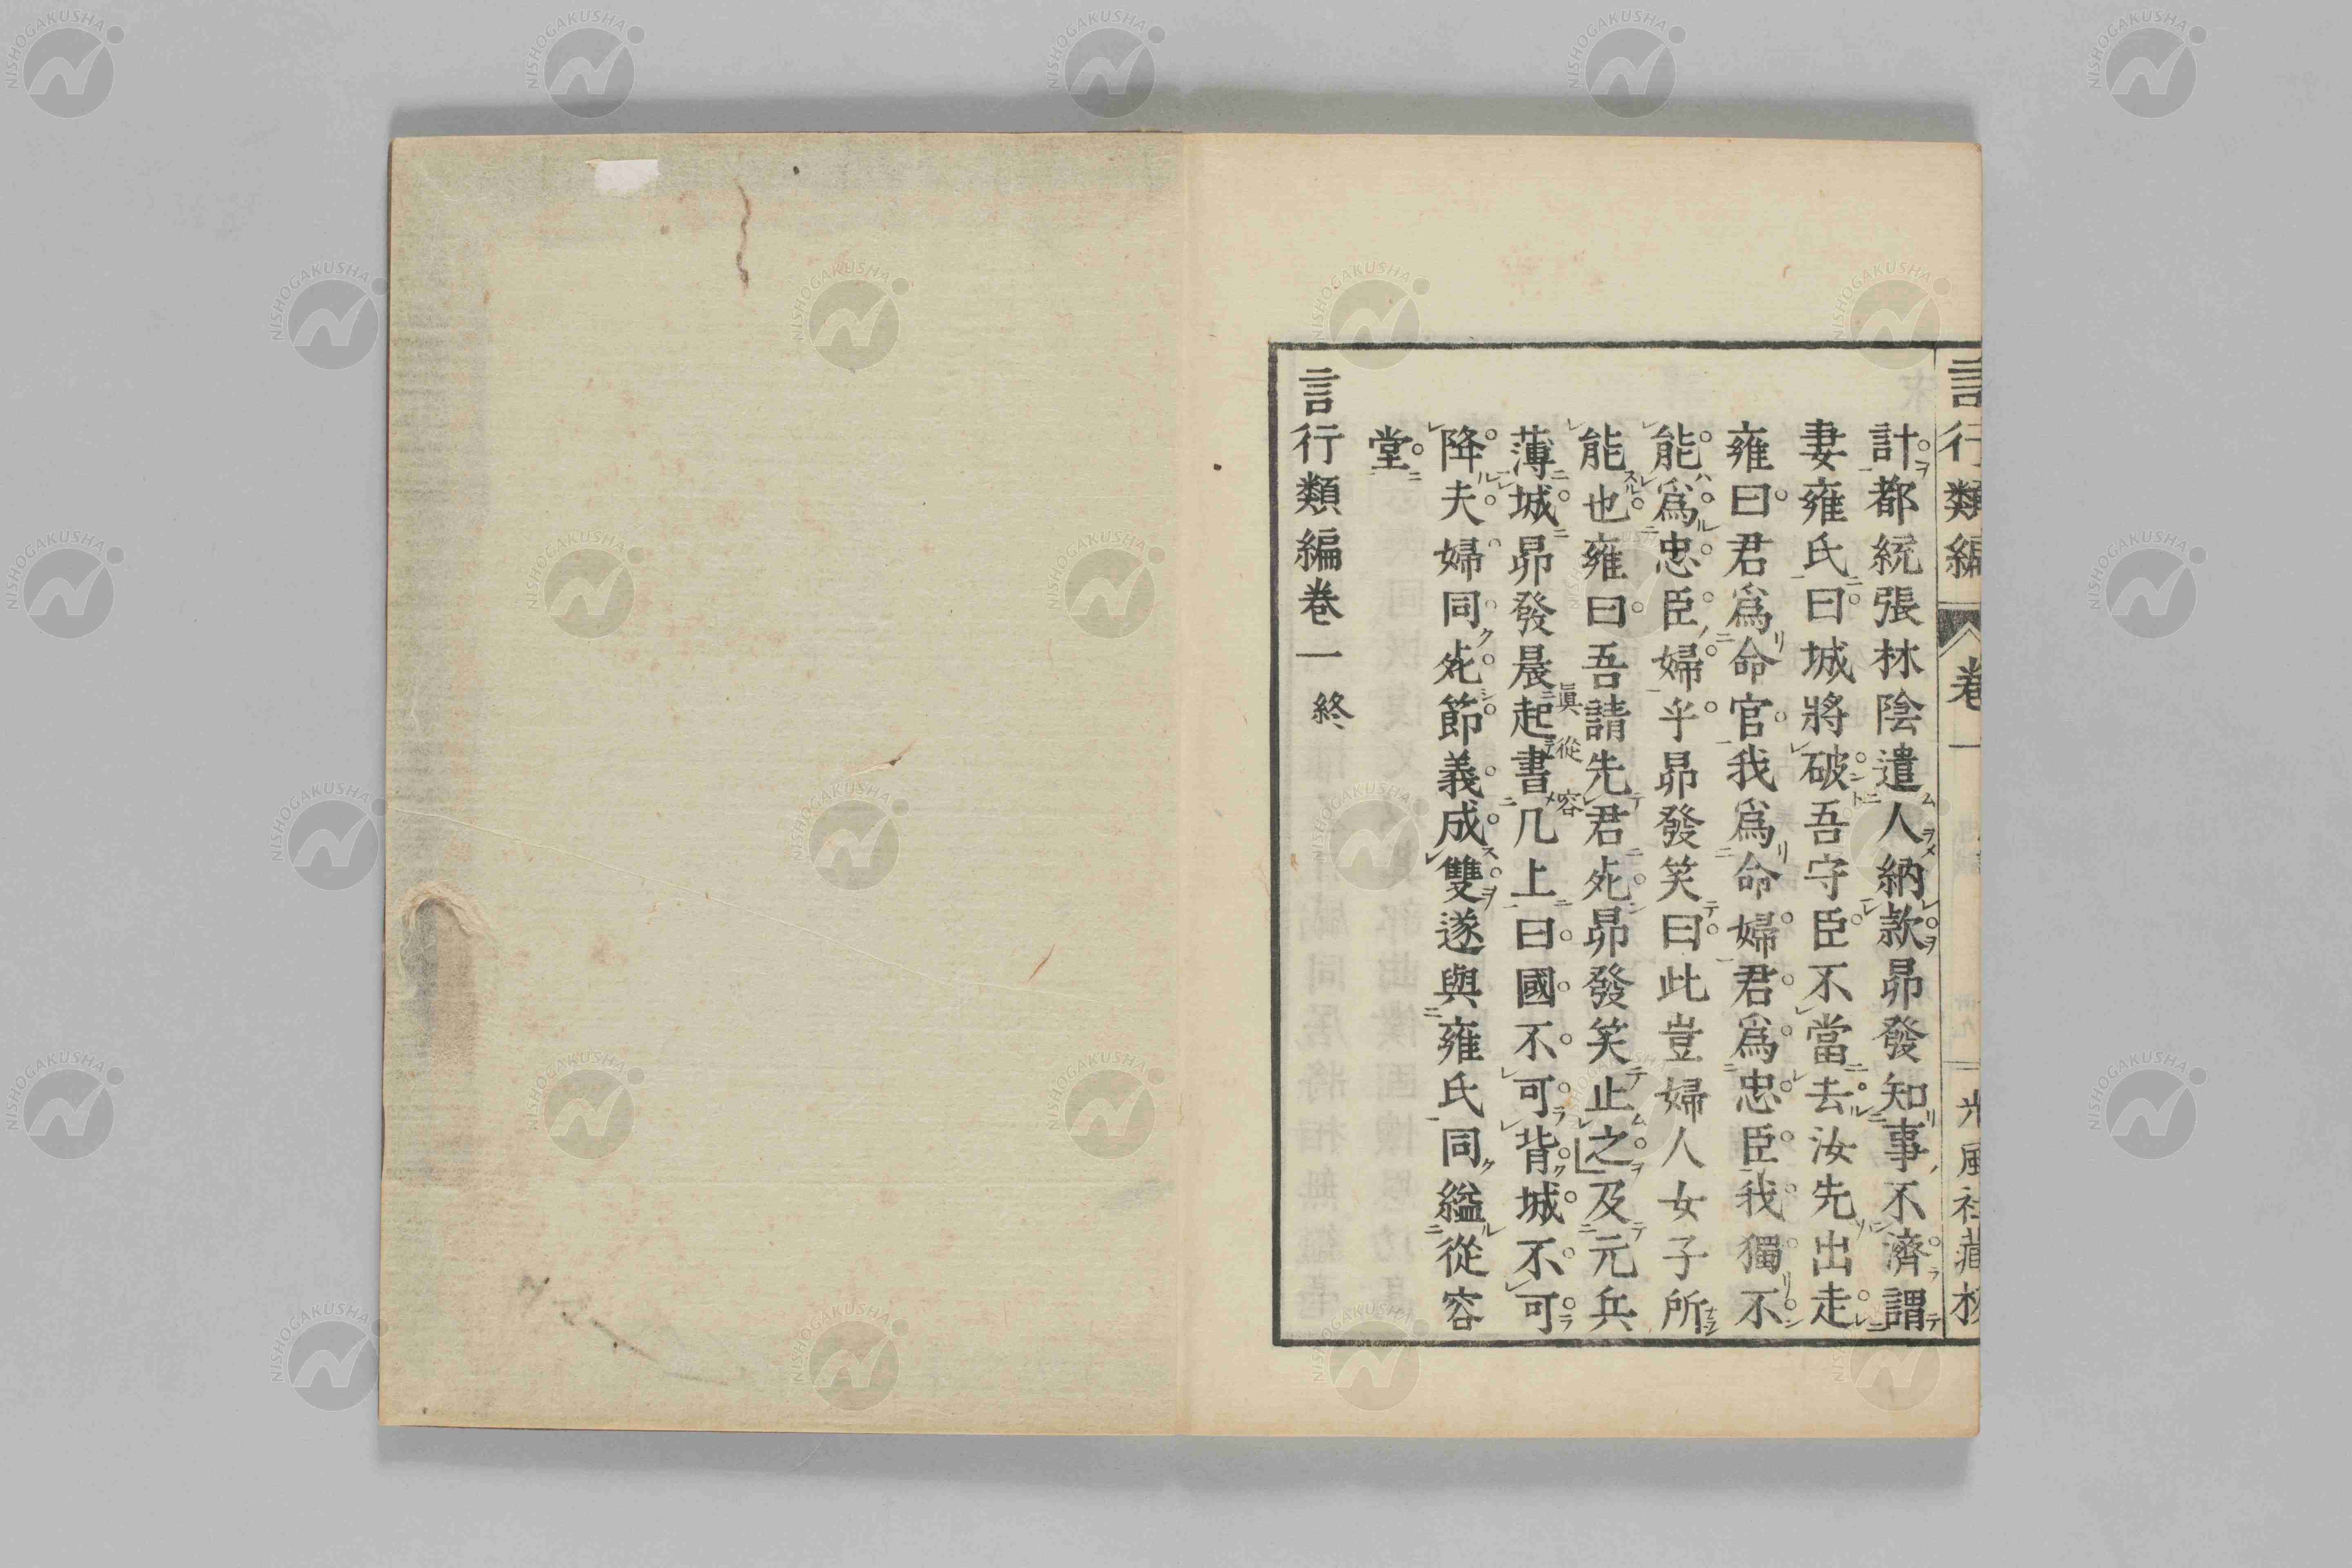 言行類編 卷一 光風社藏板
計都統張林陰遣人納款昴發知事不濟謂
妻雍氏曰城將破吾守臣不當去汝先出走
雍曰君爲命官我爲命婦君爲忠臣我獨不
能爲忠臣婦乎昴發笑曰此豈婦人女子所
能也雍曰吾請先君死昴發笑止之及元兵
薄城昴發晨起書几上曰國不可背城不可
眞從容
降夫婦同死節義成雙遂與雍氏同縊從容
堂
言行類編卷一終
NISHOGAKUSHA